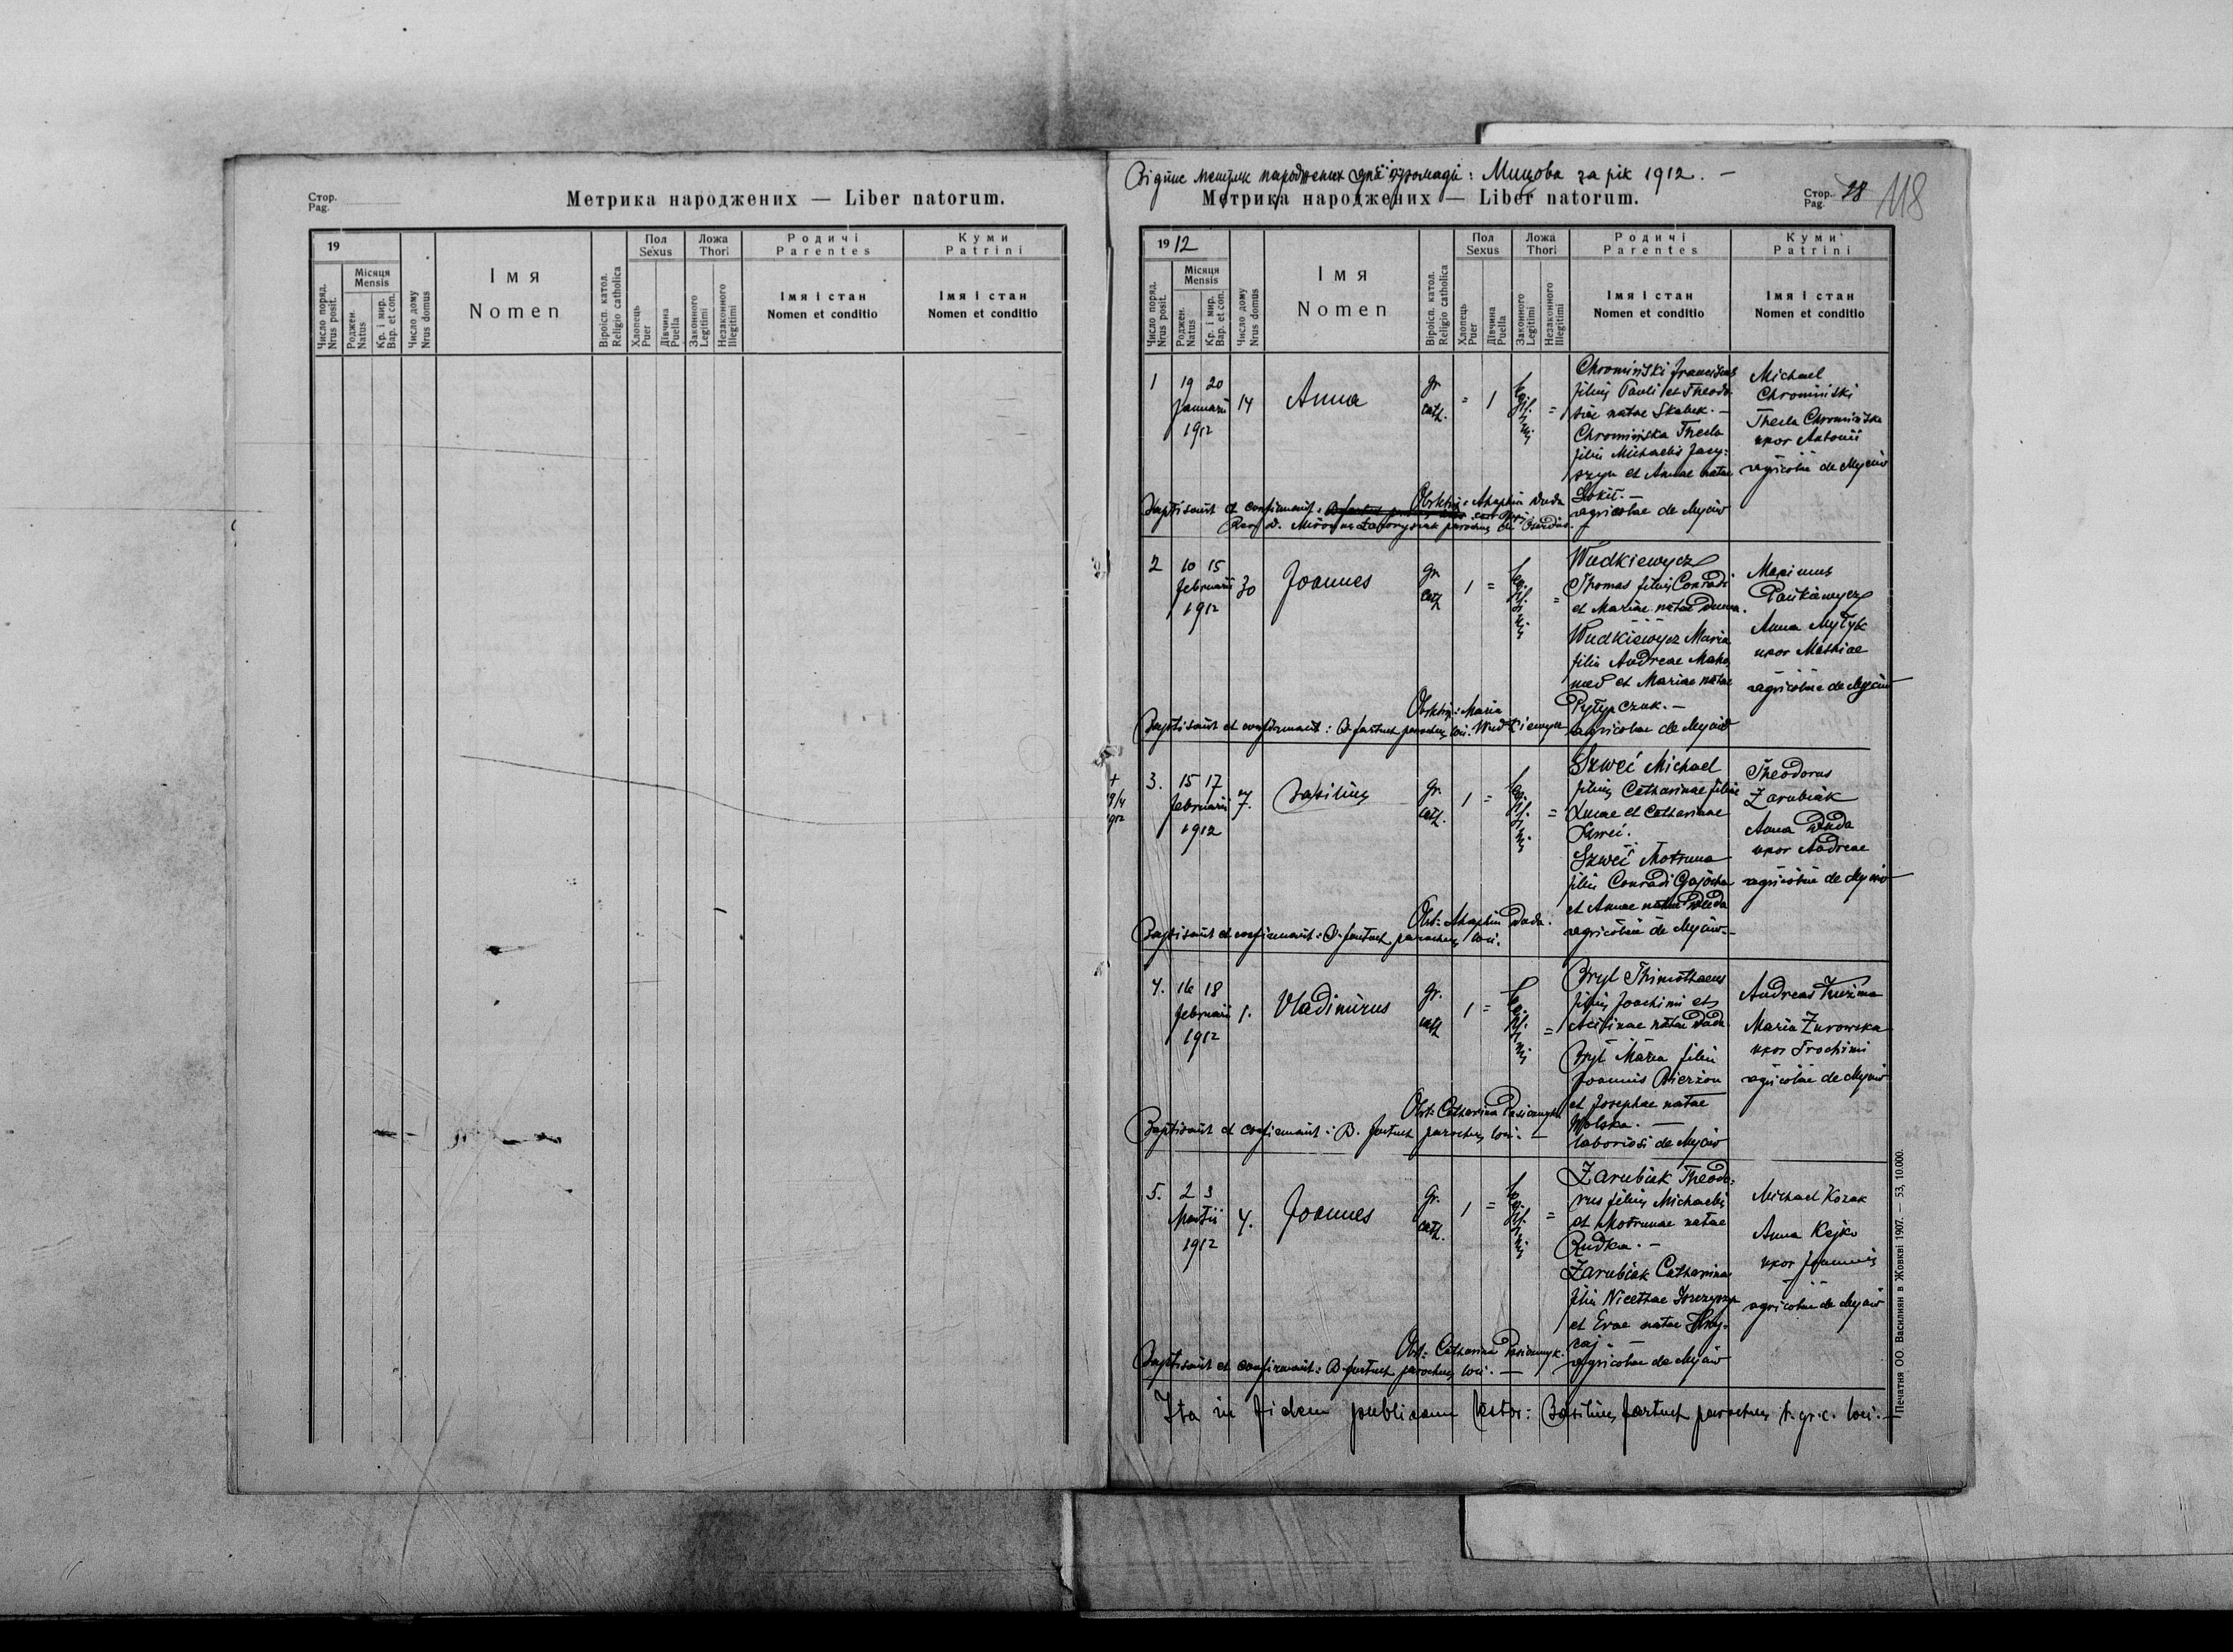 Стор.
Pag.
Метрика народжених — Liber natorum.
19
Число поряд.
Nrus posit.
Місяця
Mensis
Роджен.
Natus
Кр. і мир.
Bap. et con.
Число дому
Nrus domus
Імя
Nomen
Віроісп. катол.
Religio catholica
Пол
Sexus
Хлопець
Puer
Дівчина
Puella
Ложа
Thori
Законного
Legitimi
Незаконного
Illegitimi
Родичі
Parentes
Імя і стан
Nomen et conditio
Куми
Patrini
Імя і стан
Nomen et conditio
Відпис метрик народжених для громади: Мицова за рік 1912. —
Метрика народжених — Liber natorum.
Стор.
Pag.
28
118
19 12
Число поряд.
Nrus posit.
Місяця
Mensis
Роджен.
Natus
Кр. і мир.
Bap. et con.
Число дому
Nrus domus
Імя
Nomen
Віроісп. катол.
Religio catholica
Пол
Sexus
Хлопець
Puer
Дівчина
Puella
Ложа
Thori
Законного
Legitimi
Незаконного
Illegitimi
Родичі
Parentes
Імя і стан
Nomen et conditio
Куми
Patrini
Імя і стан
Nomen et conditio
1
19 20
Januarii
1912
14
Anna
gr.
cath.
= 1
legitimi
=
Chromiński Franciscus
filius Pauli et Theodo
siae natae Skabek. —
Chromińska Thecla
filia Michaelis Jacy=
szyn et Annae natae
agricolae de Myców
Michael
Chromiński
Thecla Chromińska
uxor Antonii
agricolae de Myców
Obstetrix: Ahaphia Duda
Baptisavit et confirmavit:
parochus de
2
10 15
Februarii
1912
30
Joannes
gr.
cath
1 =
legitimi
=
Wudkiewycz
Thomas filius Conradi
et Mariae natae Duma.
Wudkiewycz Maria
filia Andreae Maho
med et Mariae natae
Pyłypczuk. —
agricolae de Myców
Maximus
Pańkiewycz
Anna Myłyk
uxor Mathiae
agricolae de Myców
Obstetrix: Maria
Wudkiewycz
Baptisavit et confirmavit: B. Fartuch parochus loci.
+
19/4
1912
3.
15 17
Februarii
1912
7.
Basilius
gr.
cath.
1 =
legitimi
=
Szweć Michael
filius Catharinae filiae
Lucae et Catharinae
Szweć.
Szweć Motruna
filia Conradi
et Annae natae Duda
agricolae de Myców. —
Theodorus
Zarubiak
Anna Duda
uxor Andreae
agricolae de Myców
Obst: Ahaphia Duda.
Baptisavit et confirmavit: B. Fartuch parochus loci.
4.
16 18
Februarii
1912
1.
Vladimirus
gr.
cath
1 =
legitimi
=
Bryl Thimothaeus
filius Joachimi et
natae Duda
Bryl Maria filia
Joannis
et Josephae natae
Wolska. —
laboriosi de Myców
Andreas Kuźma
Maria Żurowska
uxor Trochimi
agricolae de Myców
Obst: Catharina
Baptisavit et confirmavit: B. Fartuch parochus loci. —
5.
2 3
Martii
1912
4.
Joannes
gr.
cath.
1 =
legitimi
=
Zarubiak Theodo=
rus filius Michaelis
et Motrunae natae
Rudka. —
Zarubiak Catharina
filia Nicethae
et Evae natae Hry-
caj. —
agricolae de Myców
Michael Kozak
Anna Kejko
uxor Joannis
agricolae de Myców
Obst: Catharina
Baptisavit et confirmavit: B. Fartuch parochus loci. —
Ita in fidem publicam testor: Basilius Fartuch parochus r. gr. c. loci. —
Печатня ОО. Василиян в Жовкві 1907. — 53, 10.000.